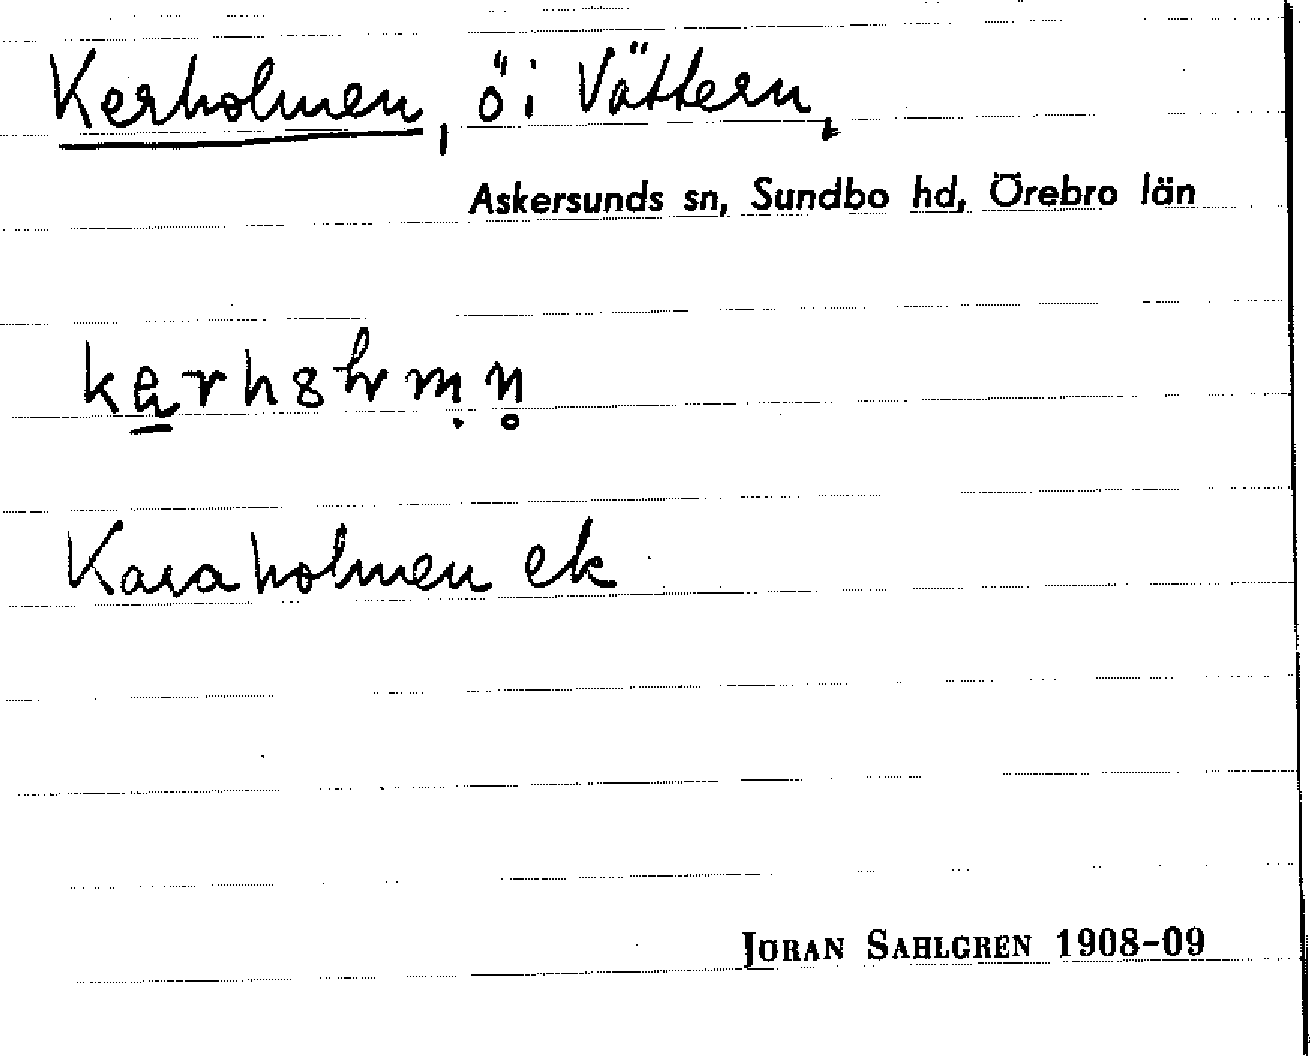 Kerholmen, ö i Vättern,
Askersunds sn, Sundbo hd, Örebro län
Karaholmen ek
JORAN SAHLGREN 1908-09